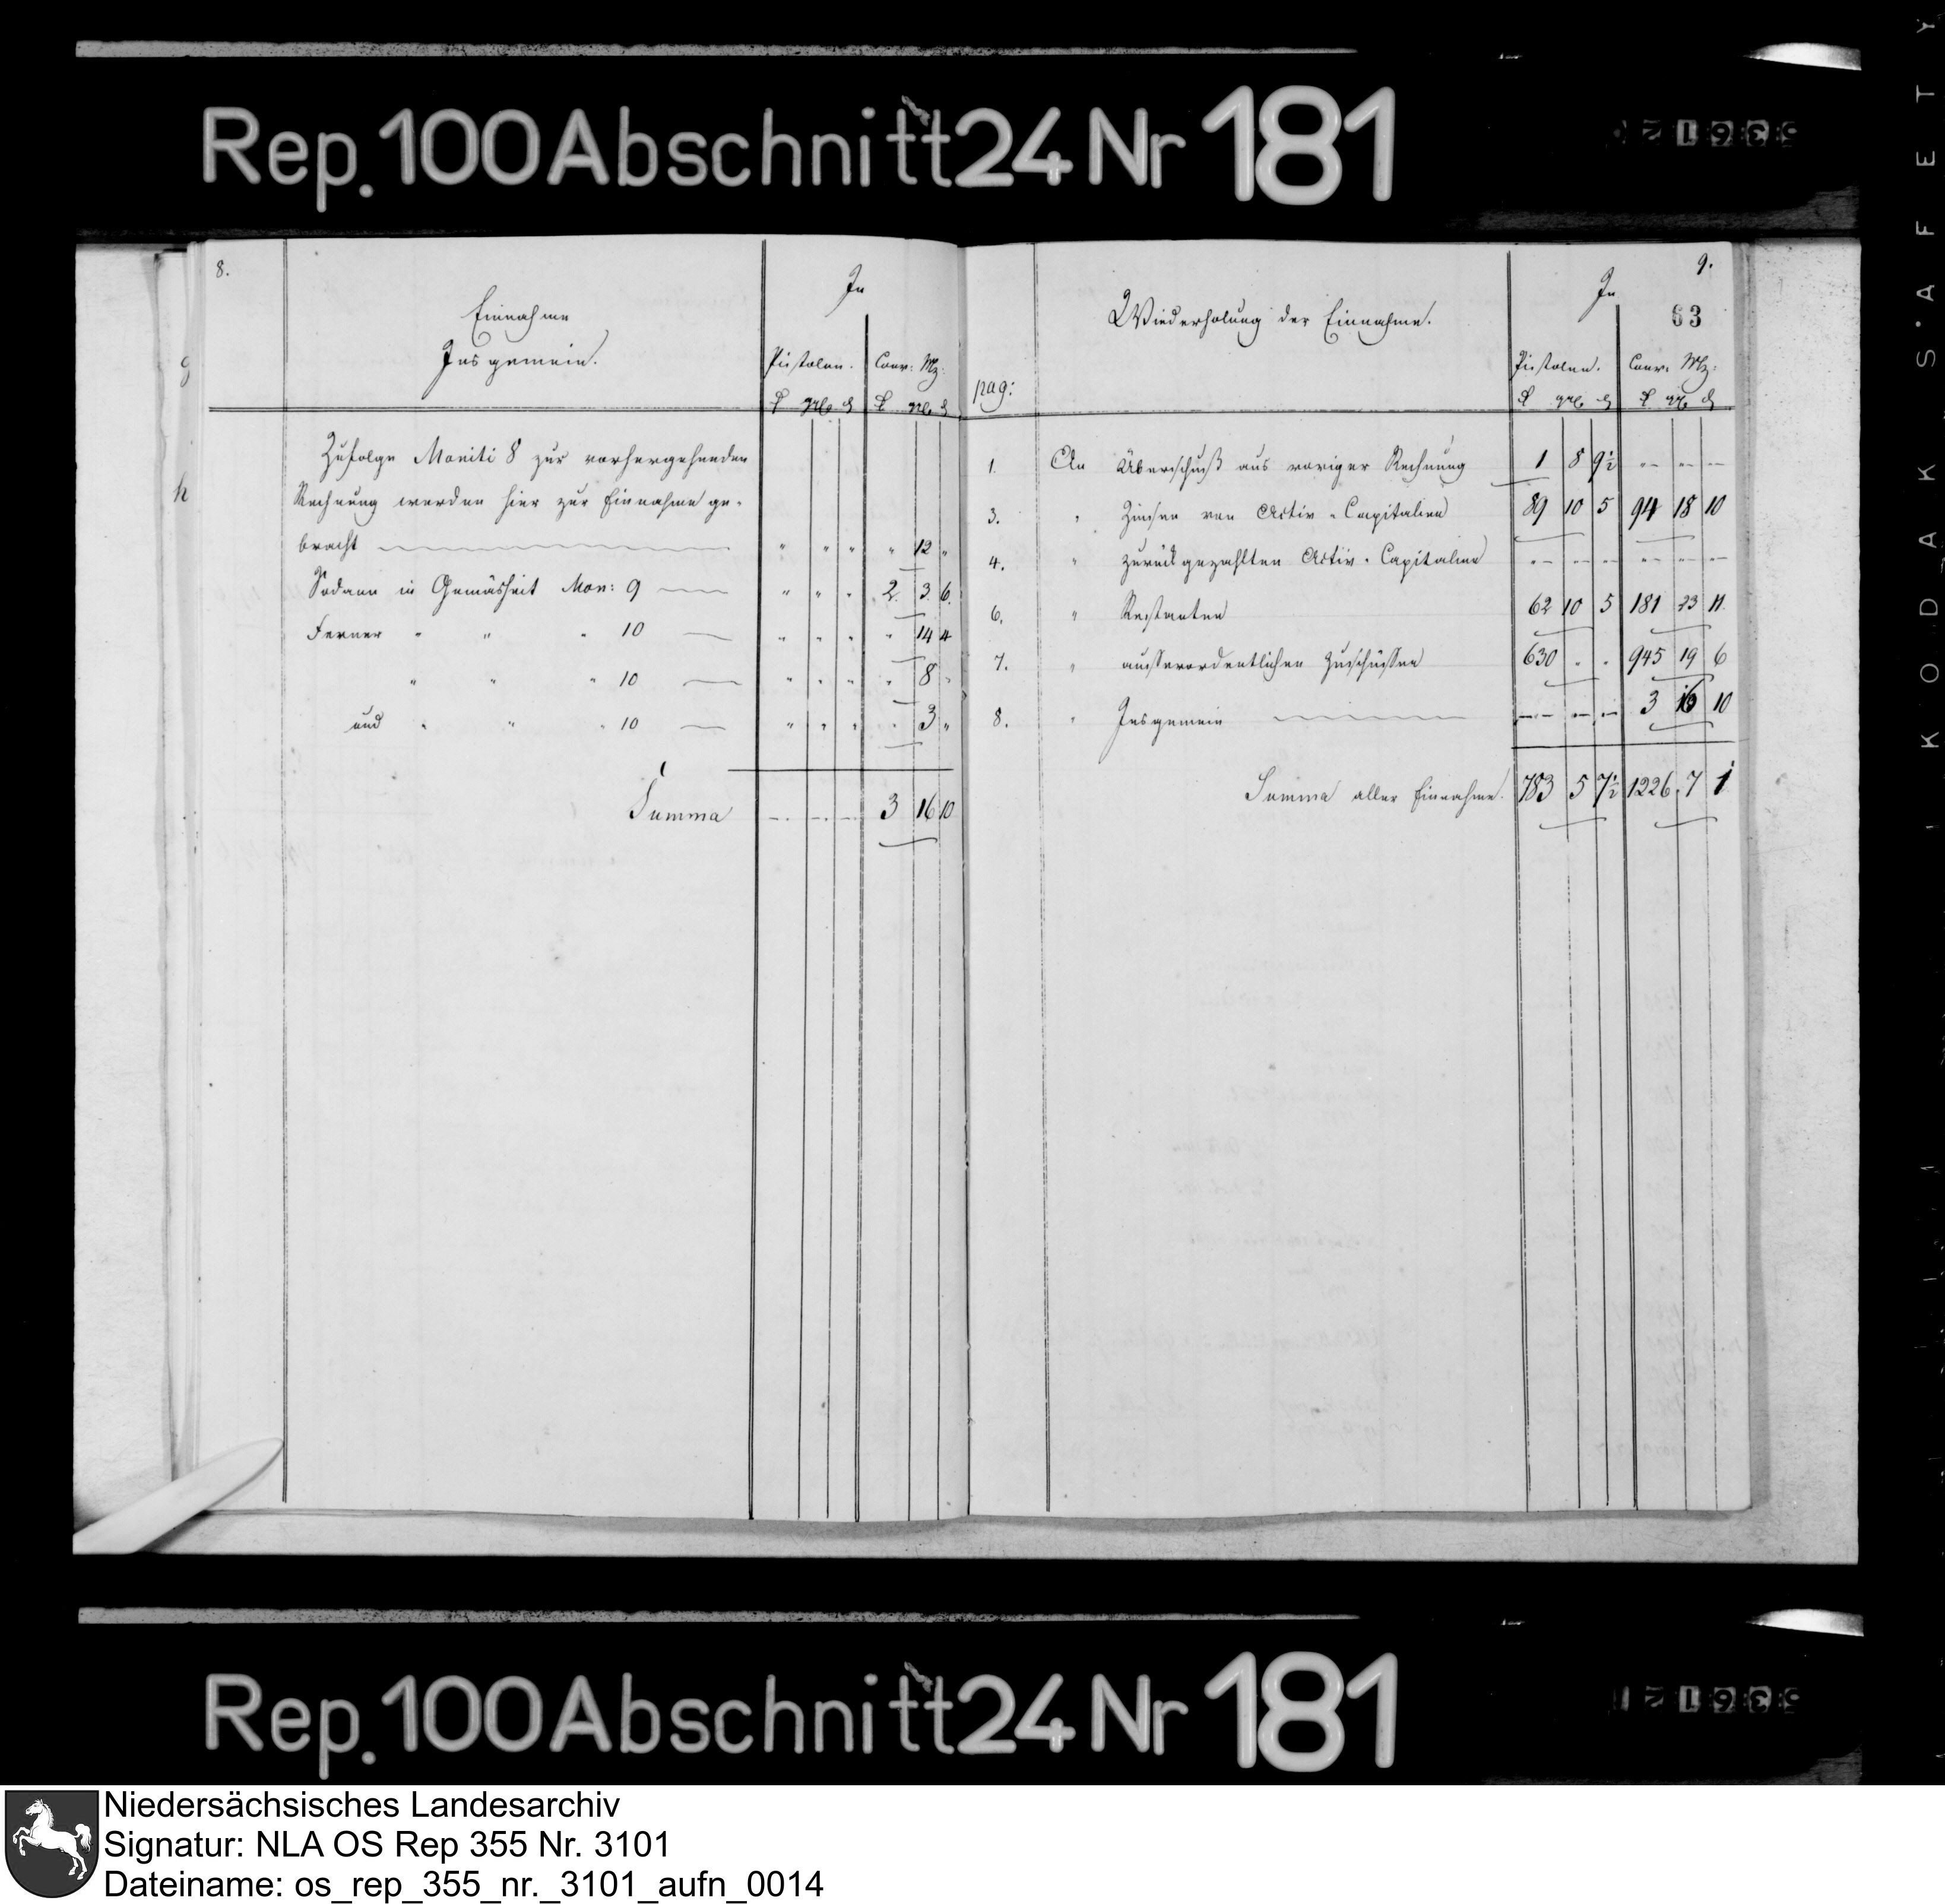 Rep. 100 Abschnitt 24 Nr 181
8.
Einnahme
Insgemein.
In
Pistolen. Conv: Mz:
₰ ggr ₰ ggr
g
h
Zufolge Moniti 8 zur vorhergehenden
Rechnung werden hier zur Einnahme ge-
bracht " " " " 12 "
Sodann in Gemäsheit Mon: 9 " " " 2. 3. 6.
Ferner " " " 10 " " " " 14 4
" " " 10 " " " " 8 "
und " " " 10 " " " " 3 "
Summa - - - 3 16 10
9.
63
Wiederholung der Einnahme.
In
pag:
Pistolen. Conv. Mz:
1. An Überschuß aus voriger Rechnung 1 8 9½ - - -
3. " Zinsen von Activ-Capitalien 89 10 5 94 18 10
4. " zurückgezahlten Activ-Capitalien - - - - - -
6. " Restanten 62 10 5 181 23 11.
7. " ausserordentlichen Zuschüssen 630 " " 945 19 6
8. " Insgemein - - - 3 16 10
Summa aller Einnahme. 783 5 7½ 1226. 7 1
KODAK · SAFETY
Rep. 100 Abschnitt 24 Nr 181
Niedersächsisches Landesarchiv
Signatur: NLA OS Rep 355 Nr. 3101
Dateiname: os_rep_355_nr._3101_aufn_0014